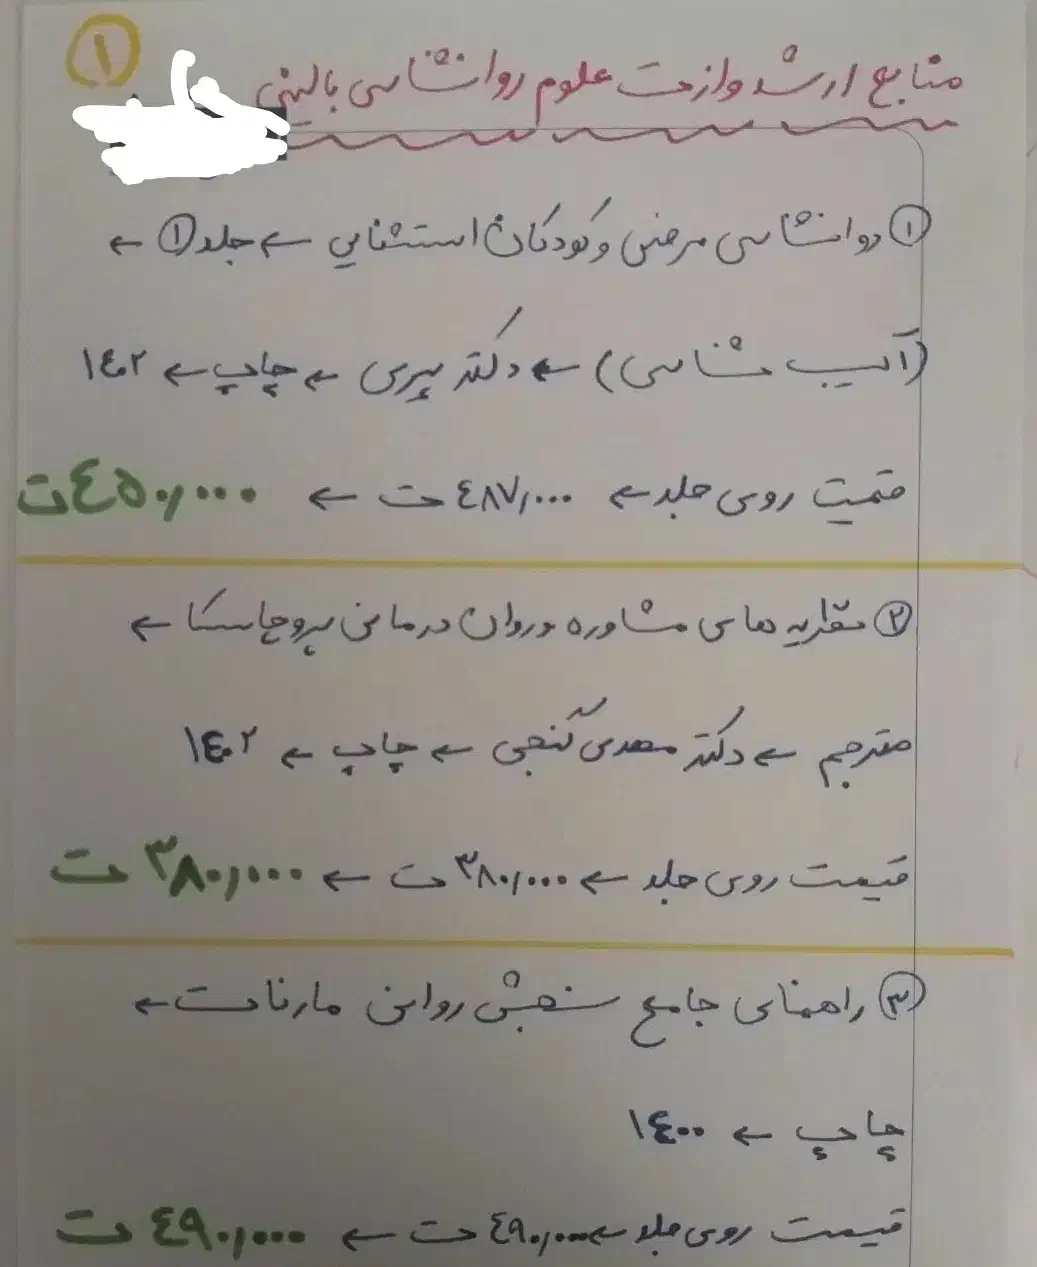 ①
منابع ارشد وازرت علوم روانشناسی بالینی
① روانشناسی مرضی و کودکان استثنایی ← جلد ① ←
(آسیب شناسی) ← دکتر پیری ← چاپ ← ۱٤۰۲
قیمت روی جلد ← ٤۸۷,۰۰۰ ت ← ٤۵۰,۰۰۰ ت
② نظریه های مشاوره و روان درمانی پروچاسکا ←
مترجم ← دکتر مهدی گنجی ← چاپ ← ۱٤۰۲
قیمت روی جلد ← ۳۸۰,۰۰۰ ت ← ۳۸۰,۰۰۰ ت
③ راهنمای جامع سنجش روانی مارنات ←
چاپ ← ۱٤۰۰
قیمت روی جلد ← ٤۹۰,۰۰۰ ت ← ٤۹۰,۰۰۰ ت